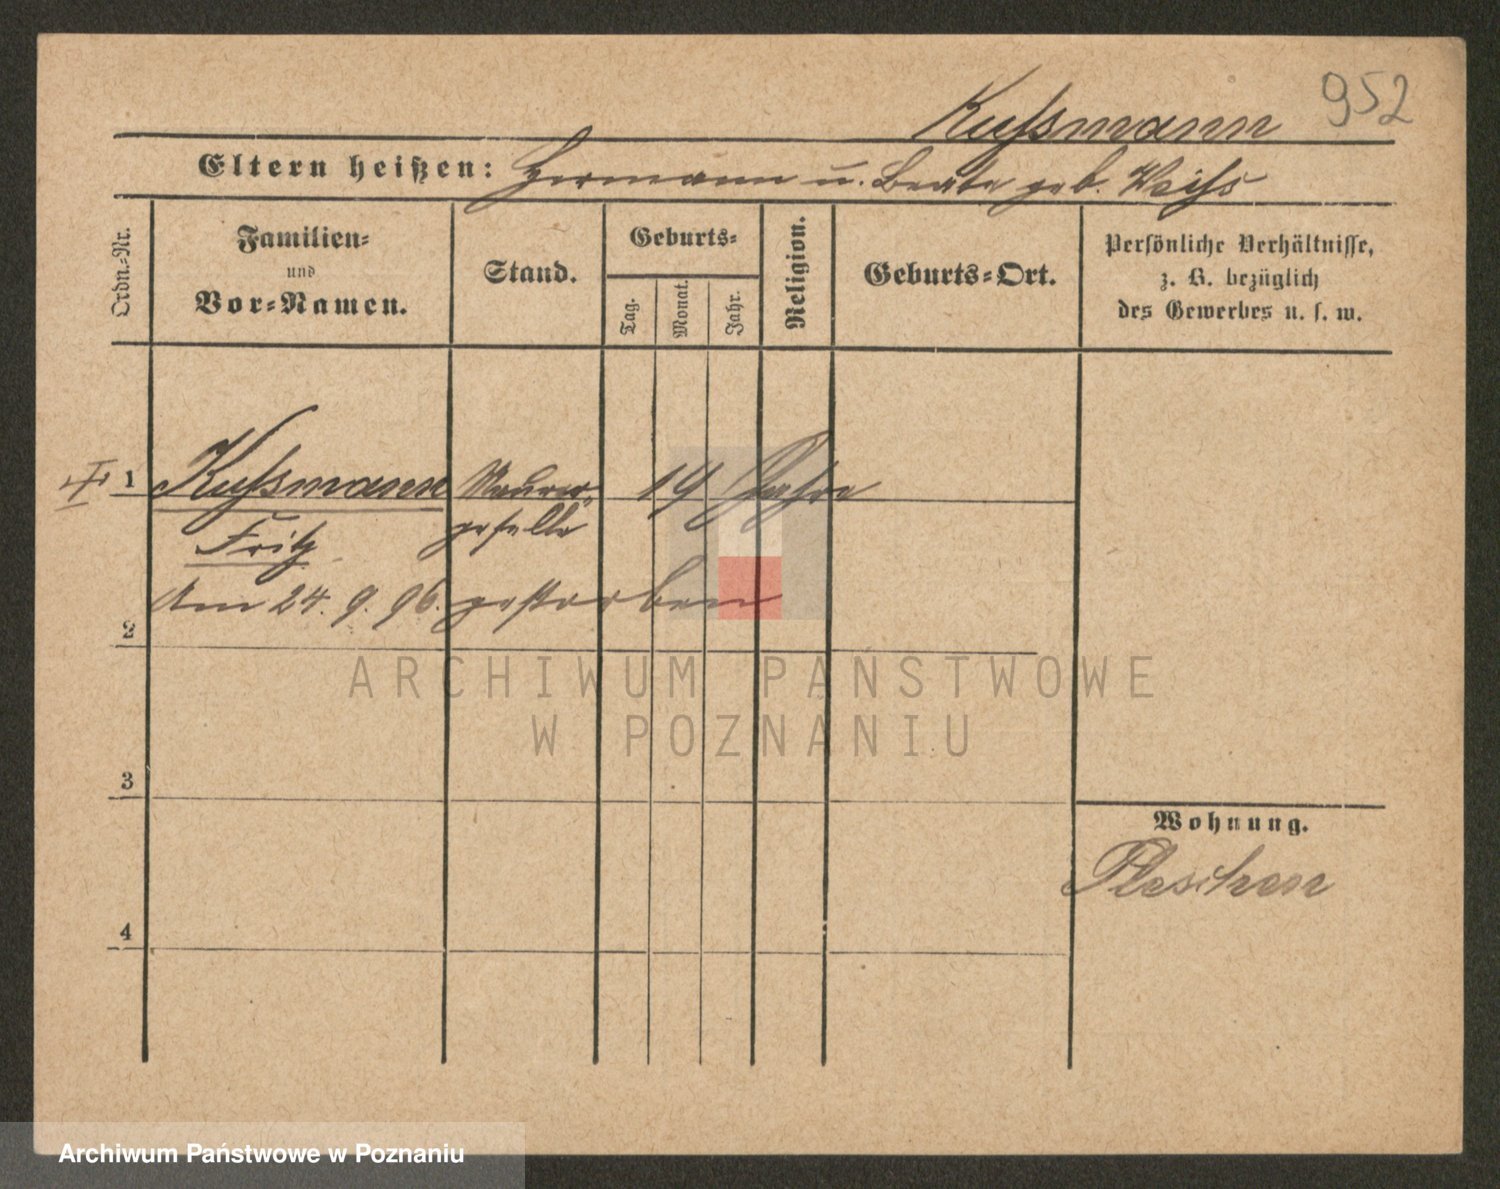 952
Kußmann
Eltern heißen: Hermann u. Beate geb. Weiß
Ordn.-Nr.
Familien-
und
Vor-Namen.
Stand.
Geburts-
Tag.
Monat.
Jahr.
Religion.
Geburts-Ort.
Persönliche Verhältnisse,
z. B. bezüglich
des Gewerbes u. s. w.
1 Kußmann Maurer- 19 Jahre
Fritz geselle
Am 24. 9. 96. gestorben
2
3
Wohnung.
Pleschen
4
ARCHIWUM PAŃSTWOWE
W POZNANIU
Archiwum Państwowe w Poznaniu